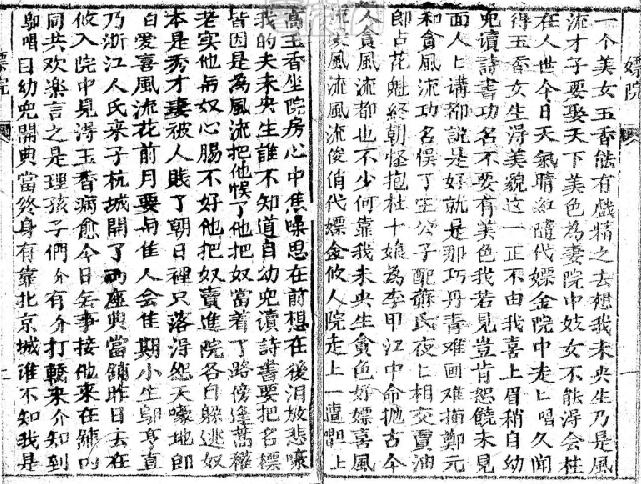 嫖院
一个美女玉香能有戲精之去想我未央生乃是風
流才子要娶天下美色為妻院中妓女不能浮会桂
在人世今日天氣晴紅隨代嫖金院中走匕唱久聞
得玉香女生浔美貌这一正不由我喜上眉稍自幼
児讀詩書功名不要有美色我若見豈肯恕饒未見
面人匕講都說是好就是那巧丹青难画难描鄭元
和貪風流功名悮了王公子配蘇氏夜匕相交賣油
郎占花魁終朝怪抱杜十娘為李甲江中命抛古今
人貪風流都也不少何靠我未央生貪色好嫖喜風
流風流風流俊俏代嫖金伩人院走上一遭唱上
高玉香坐院房心中焦噪思在前想在後泪放悲嚎
我的夫未央生誰不知道自幼児讀詩書要把名標
皆因是為風流把他悮了他把奴當着了路傍蓬蒿權
老实他與奴心腸不好他把奴賣進院各自躲逃奴
本是秀才妻被人賎了朝日裡只落浔怨天嚎地郎
白爱喜風流花前月要与佳人会佳期小生鄔亨直
乃浙江人氏来于杭城開了両座典當鋪昨日去在
伩入院中見浔玉香病愈今日無事接他来在鋪内
同共欢樂言之是理孩子們分有分打轎来介知到
鄔唱目幼児開典當終身有靠北京城誰不知我是
院